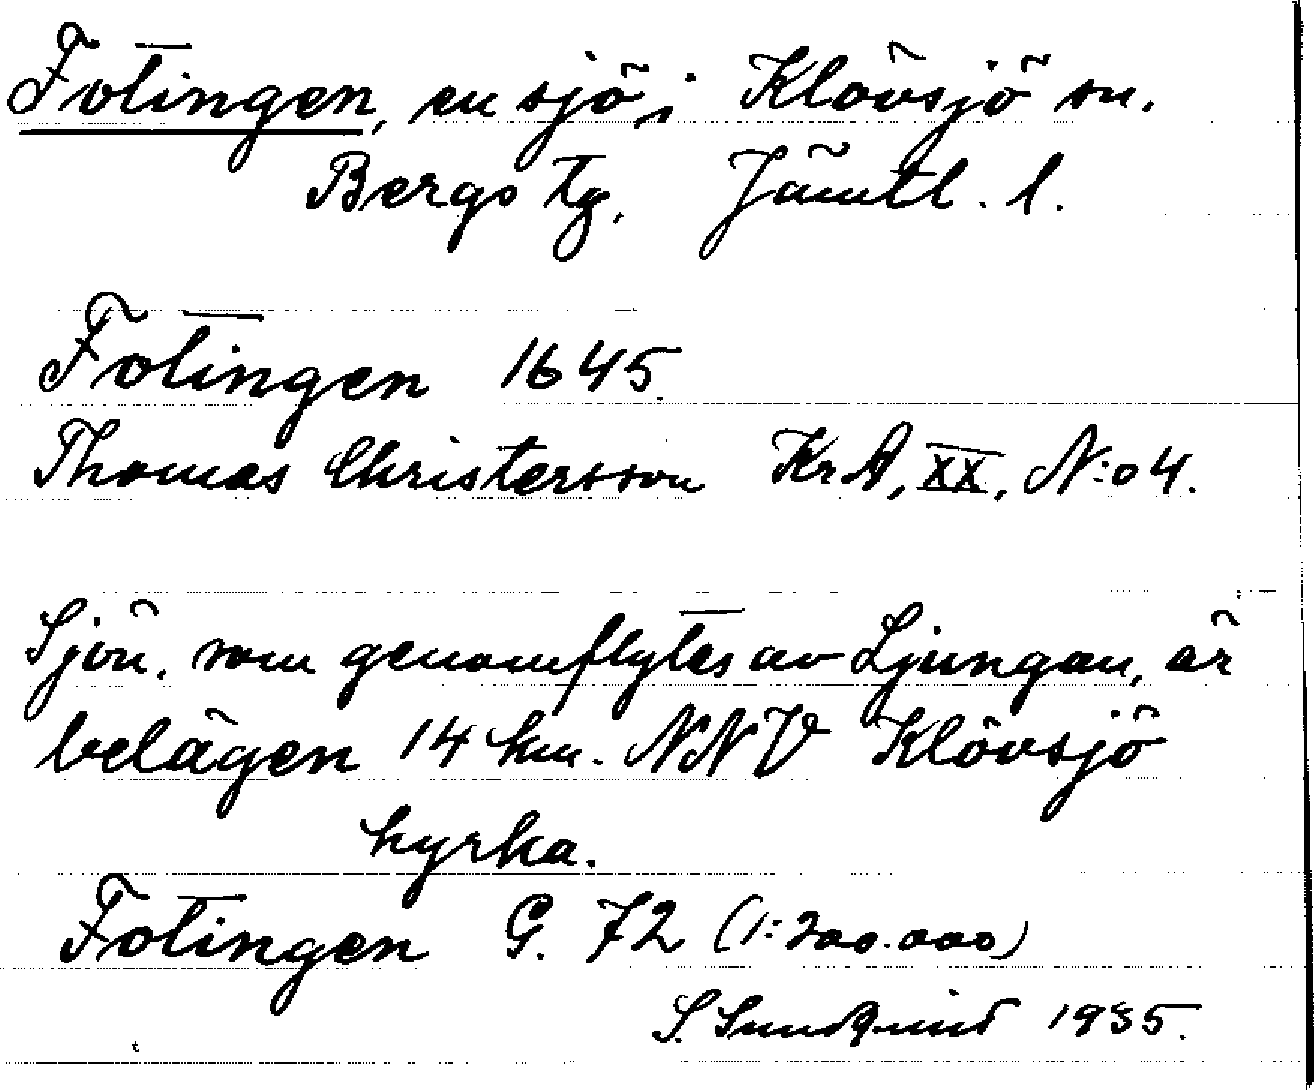 Fotingen, en sjö i Klövsjö sn.
Bergs tg, Jämtl. l.
Fotingen 1645.
Thomas Christersson KrA, XX, N:o 4.
Sjön, som genomflytes av Ljungan, är
belägen 14 km. NNV Klövsjö
kyrka.
Fotingen G. 72 (1:200.000)
S. Sundqvist 1935.